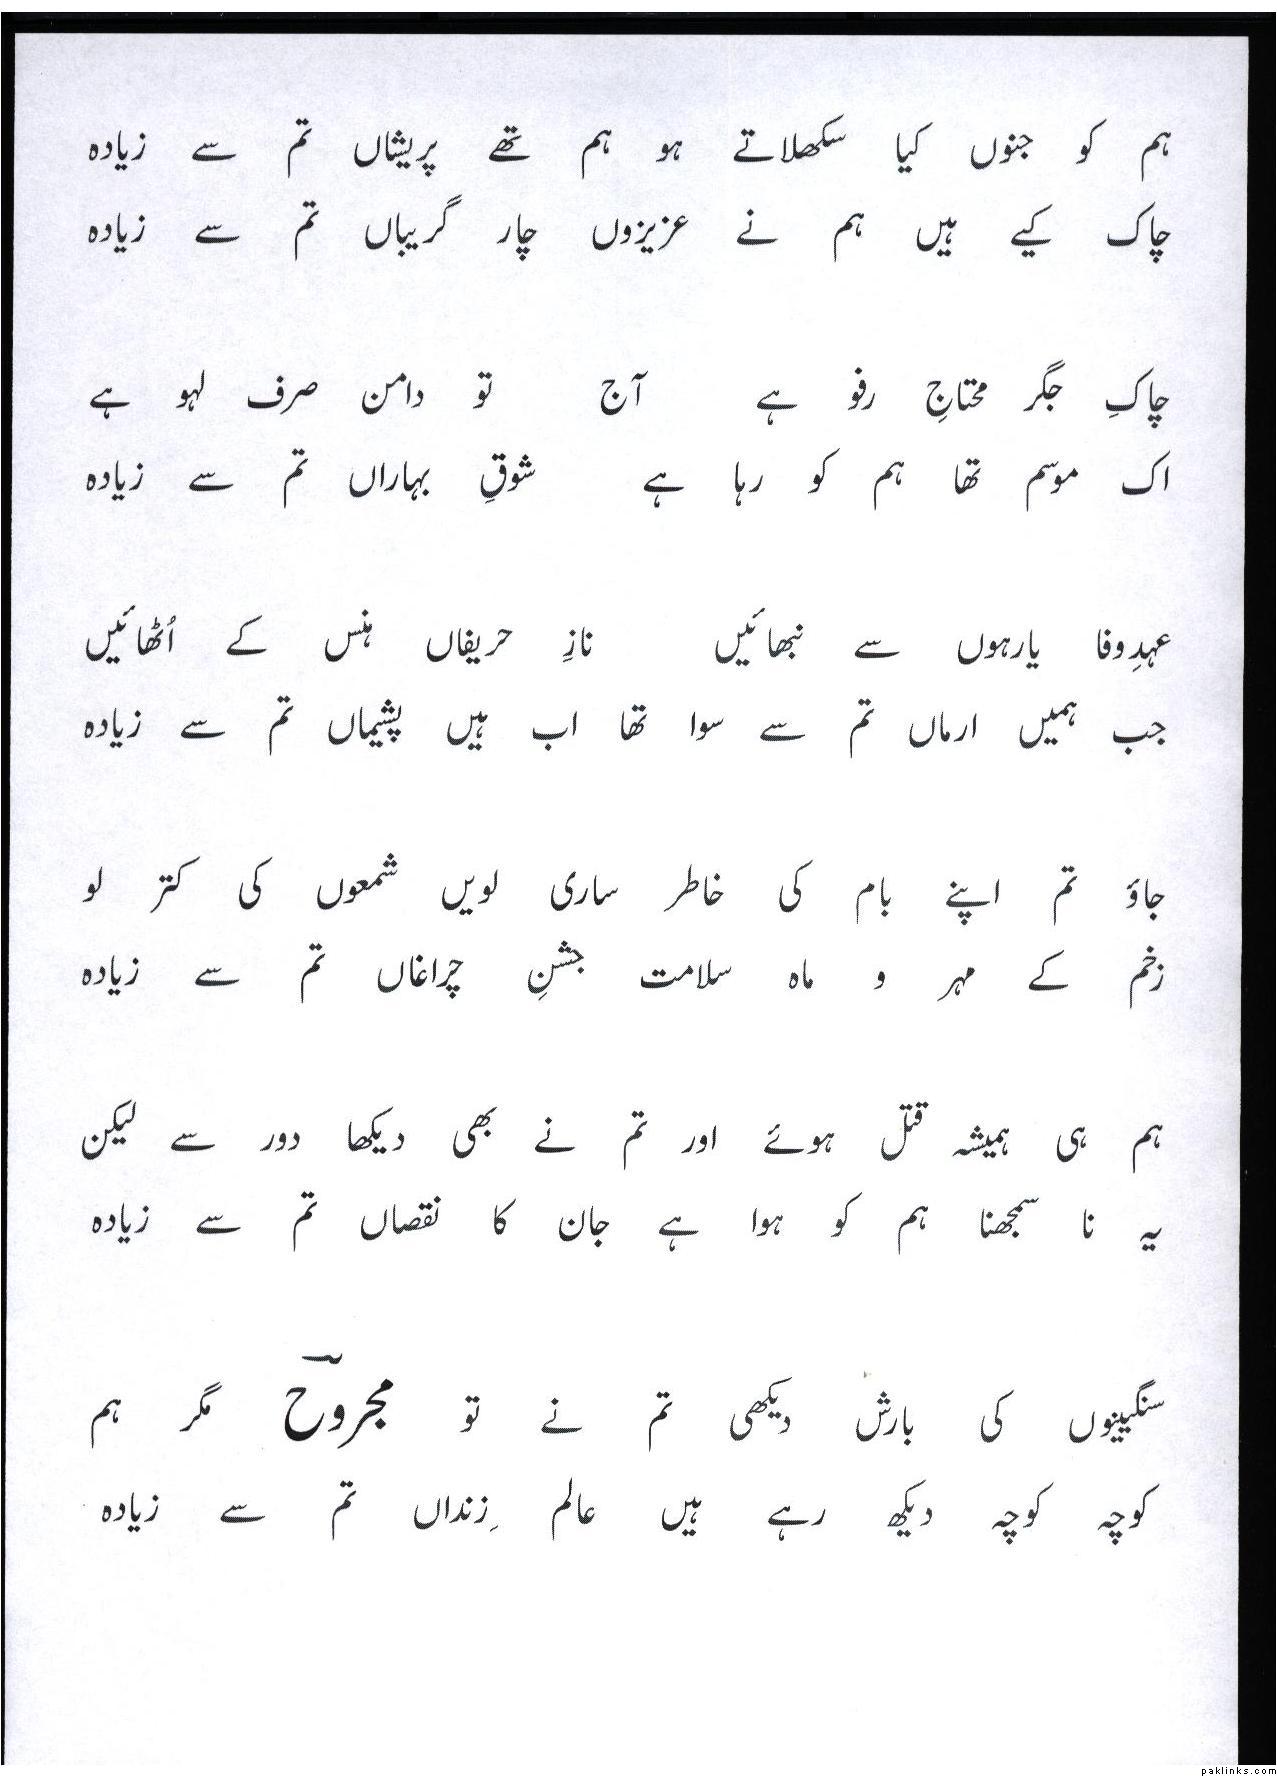 ہم کو جنوں کیا سکھلاتے ہو ہم تھے پریشاں تم سے زیادہ
چاک کیے ہیں ہم نے عزیزوں چار گریباں تم سے زیادہ
چاکِ جگر محتاجِ رفو ہے آج تو دامن صرف لہو ہے
اک موسم تھا ہم کو رہا ہے شوقِ بہاراں تم سے زیادہ
عہدِوفا یارہوں سے نبھائیں نازِ حریفاں ہنس کے اُٹھائیں
جب ہمیں ارماں تم سے سوا تھا اب ہیں پشیماں تم سے زیادہ
جاؤ تم اپنے بام کی خاطر ساری لویں شمعوں کی کتر لو
زخم کے مہر و ماہ سلامت جشنِ چراغاں تم سے زیادہ
ہم ہی ہمیشہ قتل ہوئے اور تم نے بھی دیکھا دور سے لیکن
یہ نا سمجھنا ہم کو ہوا ہے جان کا نقصاں تم سے زیادہ
سنگینوں کی بارش دیکھی تم نے تو مجروحؔ مگر ہم
کوچہ کوچہ دیکھ رہے ہیں عالم ِزنداں تم سے زیادہ
paklinks.com